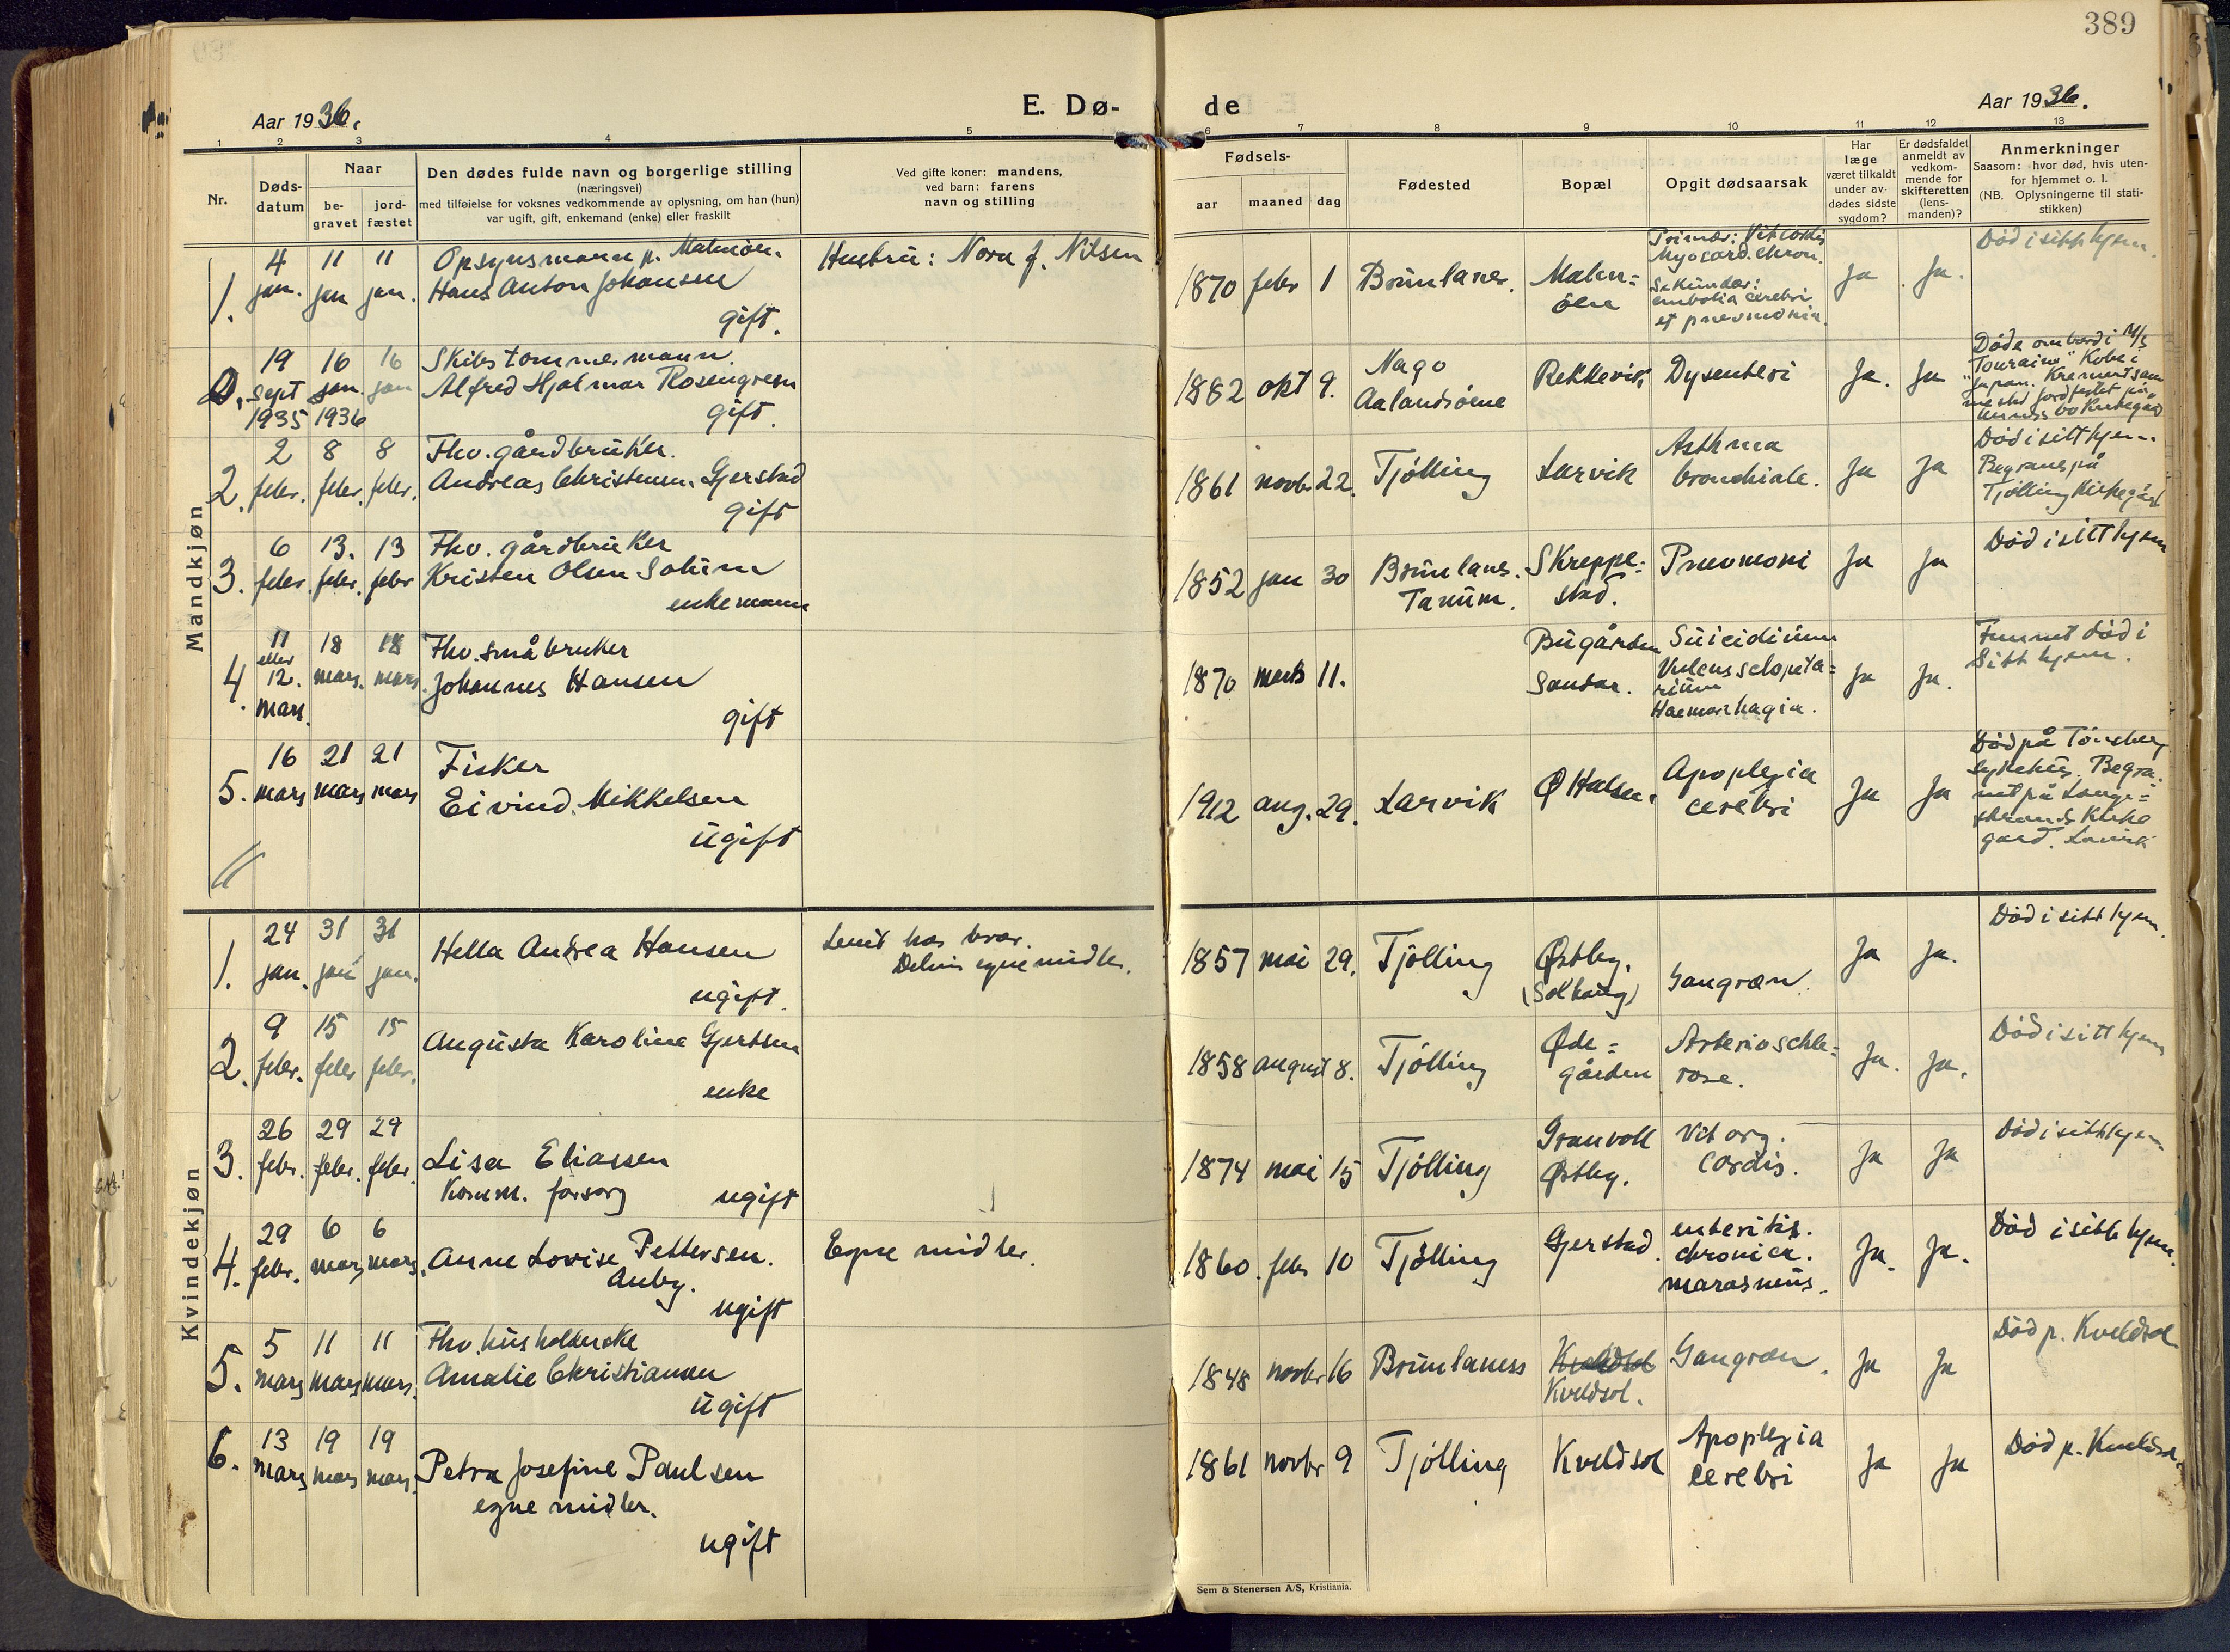 389
Aar 1936.
E. Dø-
de
Aar 1936.
1 2 3 4 5 6 7 8 9 10 11 12 13
Nr.
Døds-
datum
Naar
be-
gravet
jord-
fæstet
Den dødes fulde navn og borgerlige stilling
(næringsvei)
med tilføielse for voksnes vedkommende av oplysning, om han (hun)
var ugift, gift, enkemand (enke) eller fraskilt
Ved gifte koner: mandens,
ved barn: farens
navn og stilling
Fødsels-
aar maaned dag
Fødested
Bopæl
Opgit dødsaarsak
Har
læge
været tilkaldt
under av-
dødes sidste
sygdom?
Er dødsfaldet
anmeldt av
vedkom-
mende for
skifteretten
(lens-
manden)?
Anmerkninger
Saasom: hvor død, hvis uten-
for hjemmet o. l.
(NB. Oplysningerne til stati-
stikken)
Mandkjøn
1.
4
jan.
11
jan
11
jan.
Opsynsmann p. Malmöen.
Hans Anton Johansen
gift.
Hustru: Nora f. Nilsen
1870 febr 1
Brunlanes.
Malm-
öen
Primær: Vit. cordis
Myocard. chron.
Sekundær:
embolia cerebri
et pneumonia.
Ja
Ja.
Död i sitt hjem.
0.
19
sept
1935
16
jan.
1936
16
jan
Skibstømmermann.
Alfred Hjalmar Rosengren
gift.
1882 okt 9.
Nago
Aalandsöene
Rekkevik
Dysenteri
Ja.
Ja
Döde ombord i M/S
"Touraine" Kobe i
Japan.
2.
2
febr.
8
febr.
8
febr.
Fhv. gårdbruker.
Andreas Christensen Gjerstad
gift
1861 novbr 22.
Tjölling
Larvik
Asthma
bronchiale.
Ja
Ja
Död i sitt hjem.
Begravet på
Tjölling Kirkegård
3.
6
febr.
13.
febr.
13
febr
Fhv. gårdbruker
Kristen Olsen Solum
enkemann
1852 jan 30
Brunlanes.
Tanum.
Skreppe-
stad.
Pneumoni
Ja
Ja
Död i sitt hjem
4.
11
eller
12.
mars.
18
mars.
18
mars.
Fhv. småbruker
Johannes Hansen
gift
1870 marts 11.
Bugården
Sandar.
Suicidium
Vulnus sclopeta-
rium
Haemorrhagia.
Ja
Ja.
Funnet död i
Sitt hjem.
5.
16
mars
21
mars
21
mars
Fisker
Eivind Mikkelsen
ugift
1912 aug. 29.
Larvik
Ø Halsen.
Apoplexia
cerebri
Ja
Ja
Död på Tönsberg
sykehus. Begra-
vet på Lange-
strands Kirke
gård. Larvik
Kvindekjøn
1.
24
jan.
31
jan
31
jan.
Hella Andrea Hansen
ugift.
Levet hos bror.
Delvis egne midler.
1857 mai 29.
Tjölling
Østby.
(Solhaug)
Gangræn.
Ja
Ja.
Död i sitt hjem.
2.
9
febr.
15
febr
15
febr.
Augusta Karoline Gjertsen
enke
1858 august 8.
Tjölling
Øde-
gården
Arterioschle-
rose.
Ja.
Ja.
Död i sitt hjem
3.
26
febr.
29
febr.
29
febr.
Lisa Eliassen
Komm. forsorg
ugift
1874 mai 15
Tjölling
Granvoll
Østby.
Vit org.
cordis.
Ja
Ja
Död i sitt hjem
4.
29
febr.
6
mars
6
mars.
Anne Lovise Pettersen.
Auby.
ugift
Egne midler.
1860. febr 10
Tjölling
Gjerstad.
enteritis.
chronica.
marasmus.
Ja.
Ja.
Död i sitt hjem.
5.
5
mars
11
mars
11
mars.
Fhv. husholderske
Amalie Christiansen
ugift
1848 novbr 16
Brunlaness
Kveldsol
Kveldsol.
Gangræn.
Ja
Ja
Död p. Kveldsol
6.
13
mars
19
mars
19
mars.
Petra Josefine Paulsen
egne midler.
ugift
1861 novbr 9
Tjölling
Kveldsol
Apoplexia
cerebri
Ja
Ja
Död p. Kveldsol.
Sem & Stenersen A/S, Kristiania.